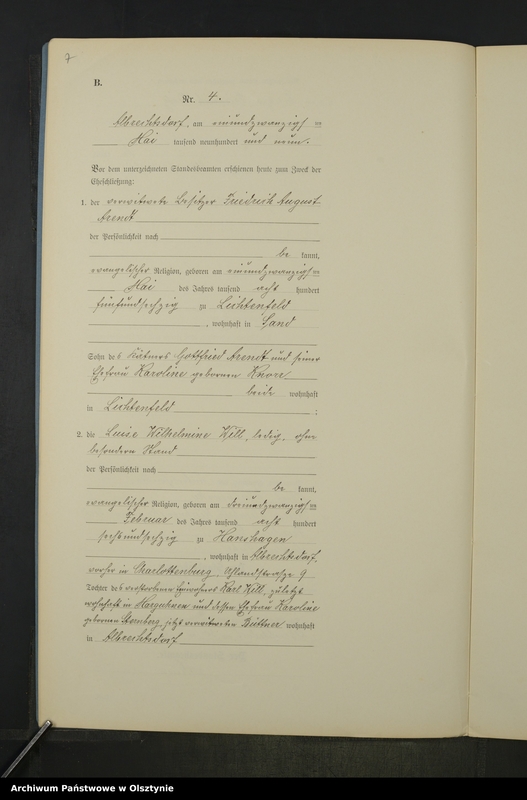 7
B.
Nr. 4.
Albrechtsdorf, am einundzwanzigsten
Mai tausend neunhundert und neun.
Vor dem unterzeichneten Standesbeamten erschienen heute zum Zweck der
Eheschließung:
1. der verwitwete Besitzer Friedrich August
Arendt
der Persönlichkeit nach
be kannt,
evangelischer Religion, geboren am einundzwanzigsten
Mai des Jahres tausend acht hundert
fünfundsechzig zu Lichtenfeld
, wohnhaft in Sand
Sohn des Kätners Gottfried Arendt und seiner
Ehefrau Karoline geborenen Knorr
beide wohnhaft
in Lichtenfeld ;
2. die Luise Wilhelmine Will, ledig, ohne
besondern Stand
der Persönlichkeit nach
be kannt,
evangelischer Religion, geboren am dreiundzwanzigsten
Februar des Jahres tausend acht hundert
sechsundsechzig zu Hanshagen
, wohnhaft in Albrechtsdorf,
vorher in Charlottenburg, Uhlandstraße 9
Tochter des verstorbenen Einwohners Karl Will, zuletzt
wohnhaft in und dessen Ehefrau Karoline
geborenen jetzt verwitweten Büttner wohnhaft
in Albrechtsdorf
Archiwum Państwowe w Olsztynie